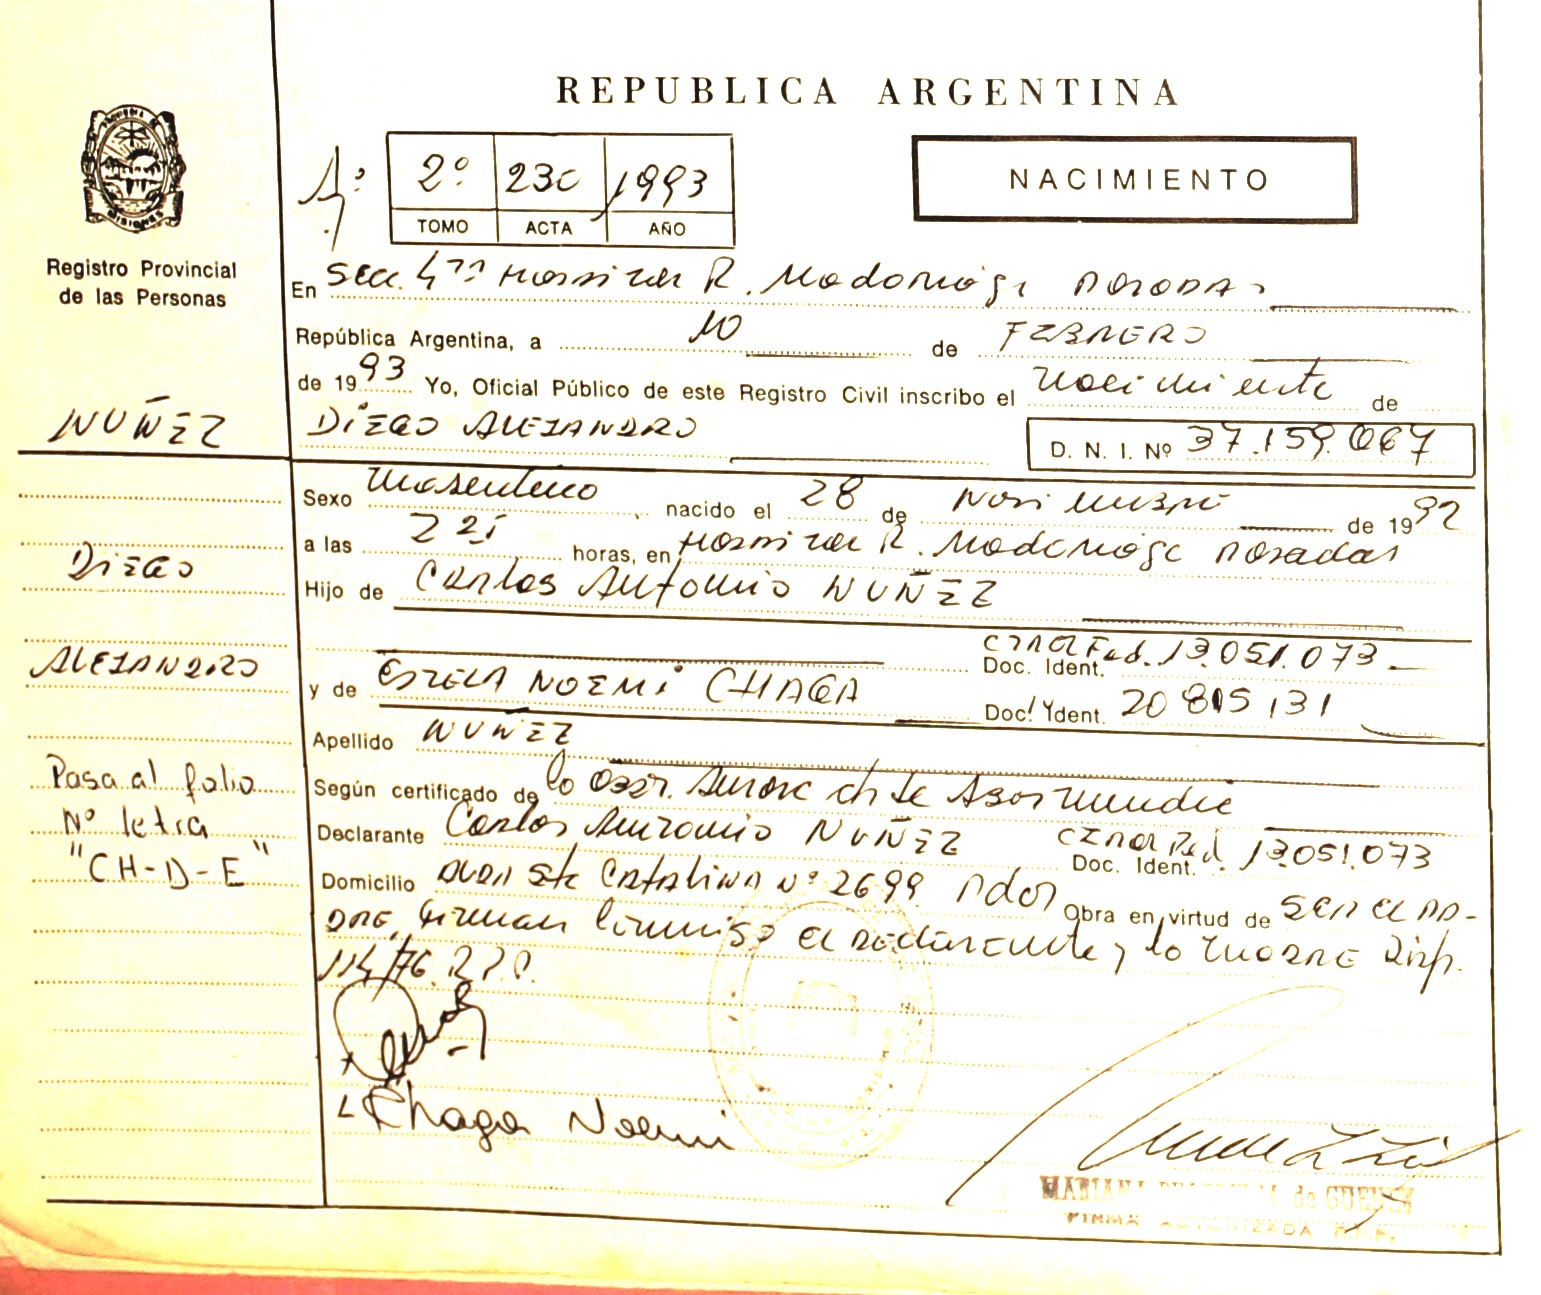 REPUBLICA ARGENTINA
2º 230 1993
TOMO ACTA AÑO
NACIMIENTO
MISIONES
Registro Provincial
de las Personas
En Secc. 4ta Hospital R. Madariaga Posadas
República Argentina, a 10 de FEBRERO
de 1993 Yo, Oficial Público de este Registro Civil inscribo el nacimiento de
NUÑEZ
DIEGO ALEJANDRO
D. N. I. Nº 37.159.067
Sexo Masculino, nacido el 28 de Noviembre de 1992
a las 221 horas, en Hospital R. Madariaga Posadas
Diego
Hijo de Carlos Antonio NUÑEZ
Doc. Ident. 13.051.073
ALEJANDRO
y de ESTELA NOEMI CHAGA
Doc. Ident. 20 815 131
Apellido NUÑEZ
Pasa al folio
Nº letra
"CH-D-E"
Según certificado de la Obst.
Declarante Carlos Antonio NUÑEZ Doc. Ident. 13.051.073
Domicilio Sta CATALINA Nº 2699 Pdas Obra en virtud de SER EL PA-
DRE, firman el DECLARENTE y la MADRE Disp.
114/76. R.P.P.
Chaga Noemi
FIRMA AUTORIZADA